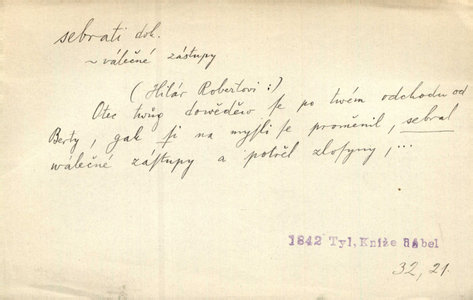 sebrati dok.
~ válečné zástupy
(Hilár Robertovi:)
Otec twůg dowěděw se po twém odchodu od
Berty, gak si na mysli se proměnil, sebral
wálečné zástupy a potřel zlosyny,...
1842 Tyl, Kníže ďábel
32, 21.